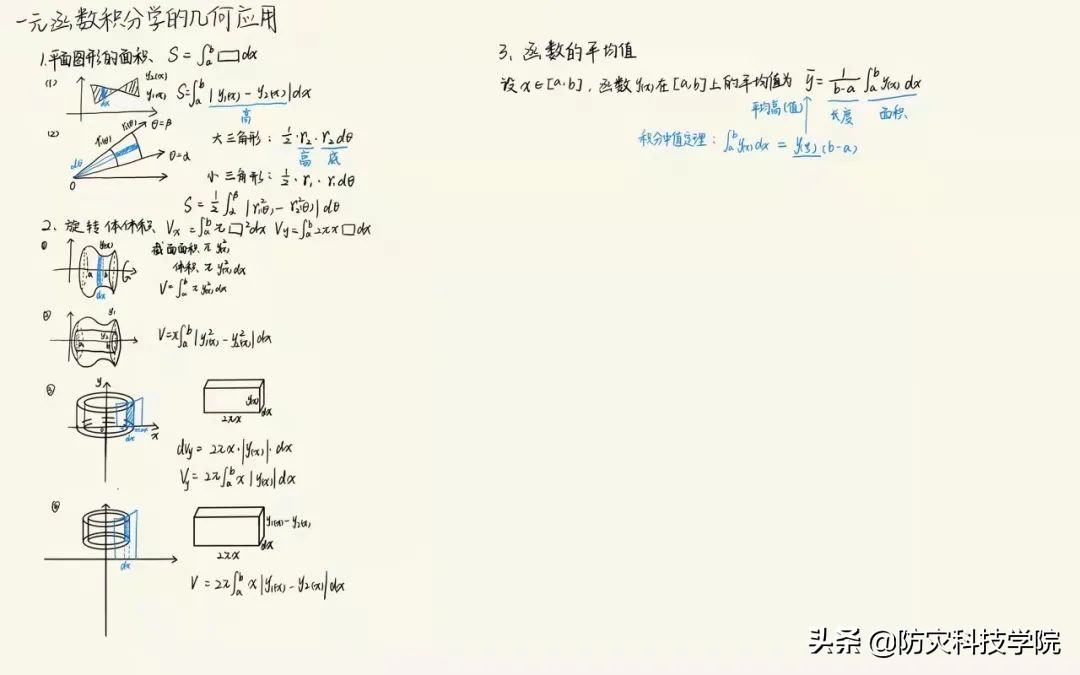 一元函数积分学的几何应用
1.平面图形的面积、 S = ∫ₐᵇ □ dx
(1) y₂(x) y₁(x) dx S=∫ₐᵇ | y₁(x) − y₂(x) | dx
高
(2) r₁(θ) r₂(θ) θ=β θ=α dθ 0
大三角形: ½·r₂·r₂dθ
高 底
小三角形: ½·r₁·r₁dθ
S = ½∫_α^β | r₁²(θ) − r₂²(θ) | dθ
2、旋转体体积、 Vₓ =∫ₐᵇ π □² dx V_y=∫ₐᵇ 2πx □ dx
① y(x) a b dx 截面面积、π y²(x)
体积、π y²(x) dx
V=∫ₐᵇ π y²(x) dx
② y₁ y₂ a b V=π∫ₐᵇ | y₁²(x) − y₂²(x) | dx
③ y x dx
y(x) dx 2πx
dV_y = 2πx·|y(x)|·dx
V_y = 2π∫ₐᵇ x |y(x)| dx
④ dx
y₁(x)−y₂(x) dx 2πx
V = 2π∫ₐᵇ x |y₁(x) − y₂(x)| dx
3、函数的平均值
设 x∈[a,b], 函数 y(x) 在 [a,b] 上的平均值为 ȳ = 1/(b-a) ∫ₐᵇ y(x) dx
平均高(值) 长度 面积、
积分中值定理: ∫ₐᵇ y(x) dx = y(ξ) (b−a)
头条 @防灾科技学院